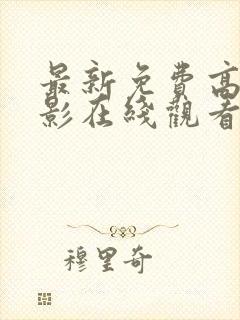 最新免費高
影在綫觀看
穆里奇